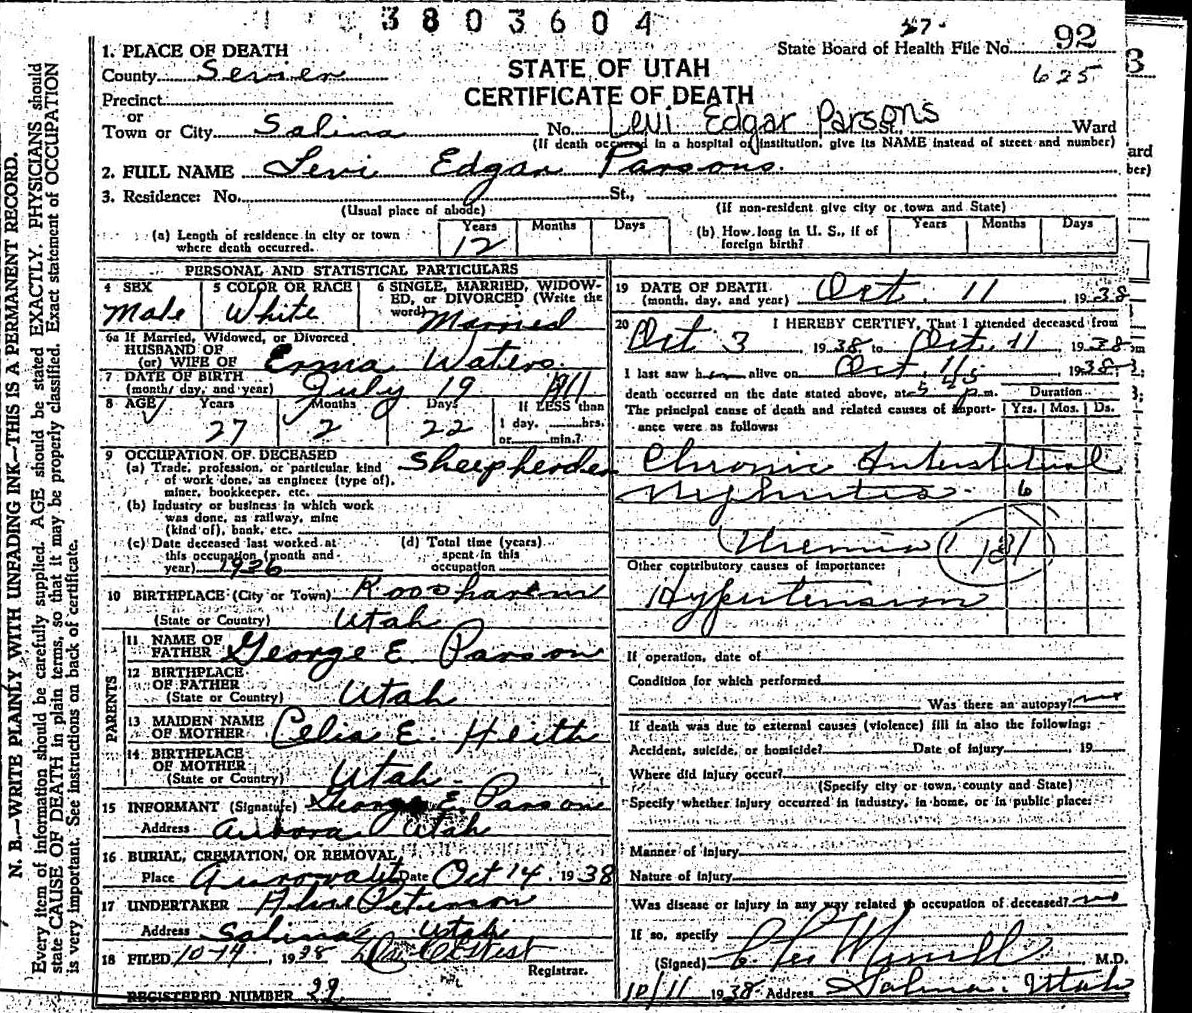 3803604
37-
1. PLACE OF DEATH
State Board of Health File No. 92
County Sevier
STATE OF UTAH
625
Precinct
CERTIFICATE OF DEATH
or
Town or City Salina No. Levi Edgar Parsons St., Ward
(If death occurred in a hospital or institution, give its NAME instead of street and number)
2. FULL NAME Levi Edgar Parsons.
3. Residence: No. St.,
(Usual place of abode) (If non-resident give city or town and State)
(a) Length of residence in city or town where death occurred. Years 12 Months Days
(b) How long in U. S., if of foreign birth? Years Months Days
PERSONAL AND STATISTICAL PARTICULARS
4 SEX Male
5 COLOR OR RACE White
6 SINGLE, MARRIED, WIDOWED, or DIVORCED (Write the word) Married
6a If Married, Widowed, or Divorced
HUSBAND OF
(or) WIFE OF Erma Waters.
7 DATE OF BIRTH
(month, day, and year) July 19 1911
8 AGE Years 27 Months 2 Days 22 If LESS than
1 day, hrs.
or min.?
9 OCCUPATION OF DECEASED
(a) Trade, profession, or particular kind Sheepherder
of work done, as engineer (type of),
miner, bookkeeper, etc.
(b) Industry or business in which work
was done, as railway, mine
(kind of), bank, etc.
(c) Date deceased last worked at
this occupation (month and
year) 1936
(d) Total time (years)
spent in this
occupation
10 BIRTHPLACE (City or Town) Koosharem
(State or Country) Utah
PARENTS
11 NAME OF
FATHER George E. Parson
12 BIRTHPLACE
OF FATHER
(State or Country) Utah
13 MAIDEN NAME
OF MOTHER Celia E. Heith
14 BIRTHPLACE
OF MOTHER
(State or Country) Utah
15 INFORMANT (Signature) George E. Parson
Address Aurora Utah
16 BURIAL, CREMATION, OR REMOVAL,
Place Date Oct 14. 1938
17 UNDERTAKER
Address Salina Utah
18 FILED 10-14, 1938
Registrar.
REGISTERED NUMBER 29
19 DATE OF DEATH
(month, day, and year) Oct. 11 1938
20 I HEREBY CERTIFY, That I attended deceased from
Oct 3 1938 to Oct. 11 1938
I last saw him alive on Oct. 11 1938
death occurred on the date stated above, at 5 45 p.m.
Duration
The principal cause of death and related causes of importance were as follows:
Yrs. Mos. Ds.
Chronic Interstitial
Nephritis - 6
Uremia 131
Other contributory causes of importance:
Hypertension
If operation, date of
Condition for which performed
Was there an autopsy? no
If death was due to external causes (violence) fill in also the following:
Accident, suicide, or homicide? Date of injury , 19
Where did injury occur?
(Specify city or town, county and State)
Specify whether injury occurred in industry, in home, or in public place:
Manner of injury
Nature of injury
Was disease or injury in any way related to occupation of deceased? no
If so, specify
(Signed) M.D.
10/11 1938 Address Salina. Utah
N. B.—WRITE PLAINLY WITH UNFADING INK—THIS IS A PERMANENT RECORD.
Every item of information should be carefully supplied. AGE should be stated EXACTLY. PHYSICIANS should
state CAUSE OF DEATH in plain terms, so that it may be properly classified. Exact statement of OCCUPATION
is very important. See instructions on back of certificate.